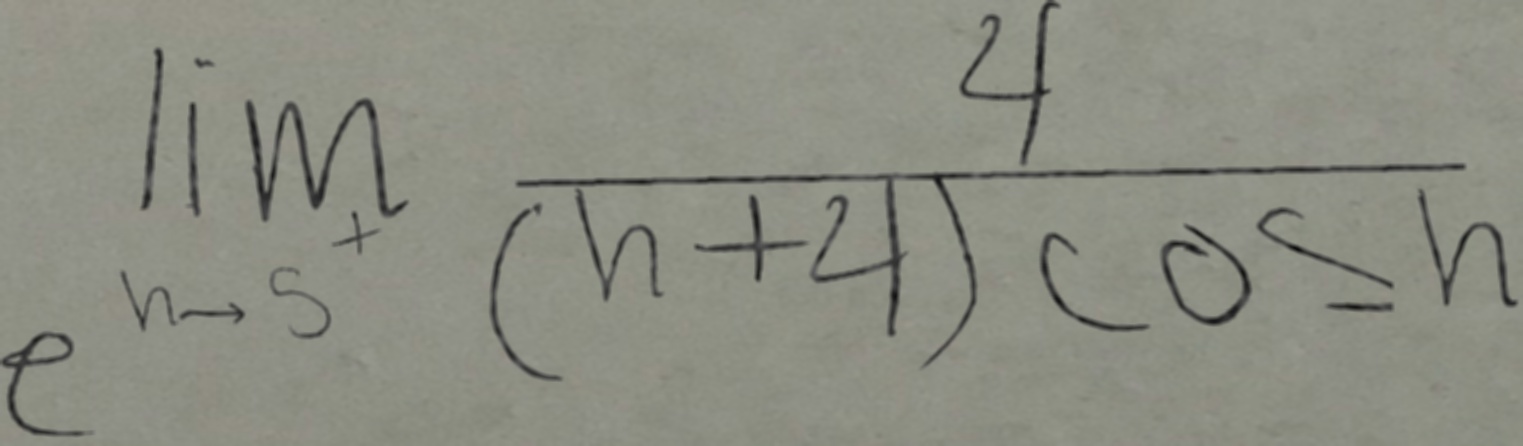 e^{\lim_{h \to 5^+} \frac{4}{(h+4) \cos h}}